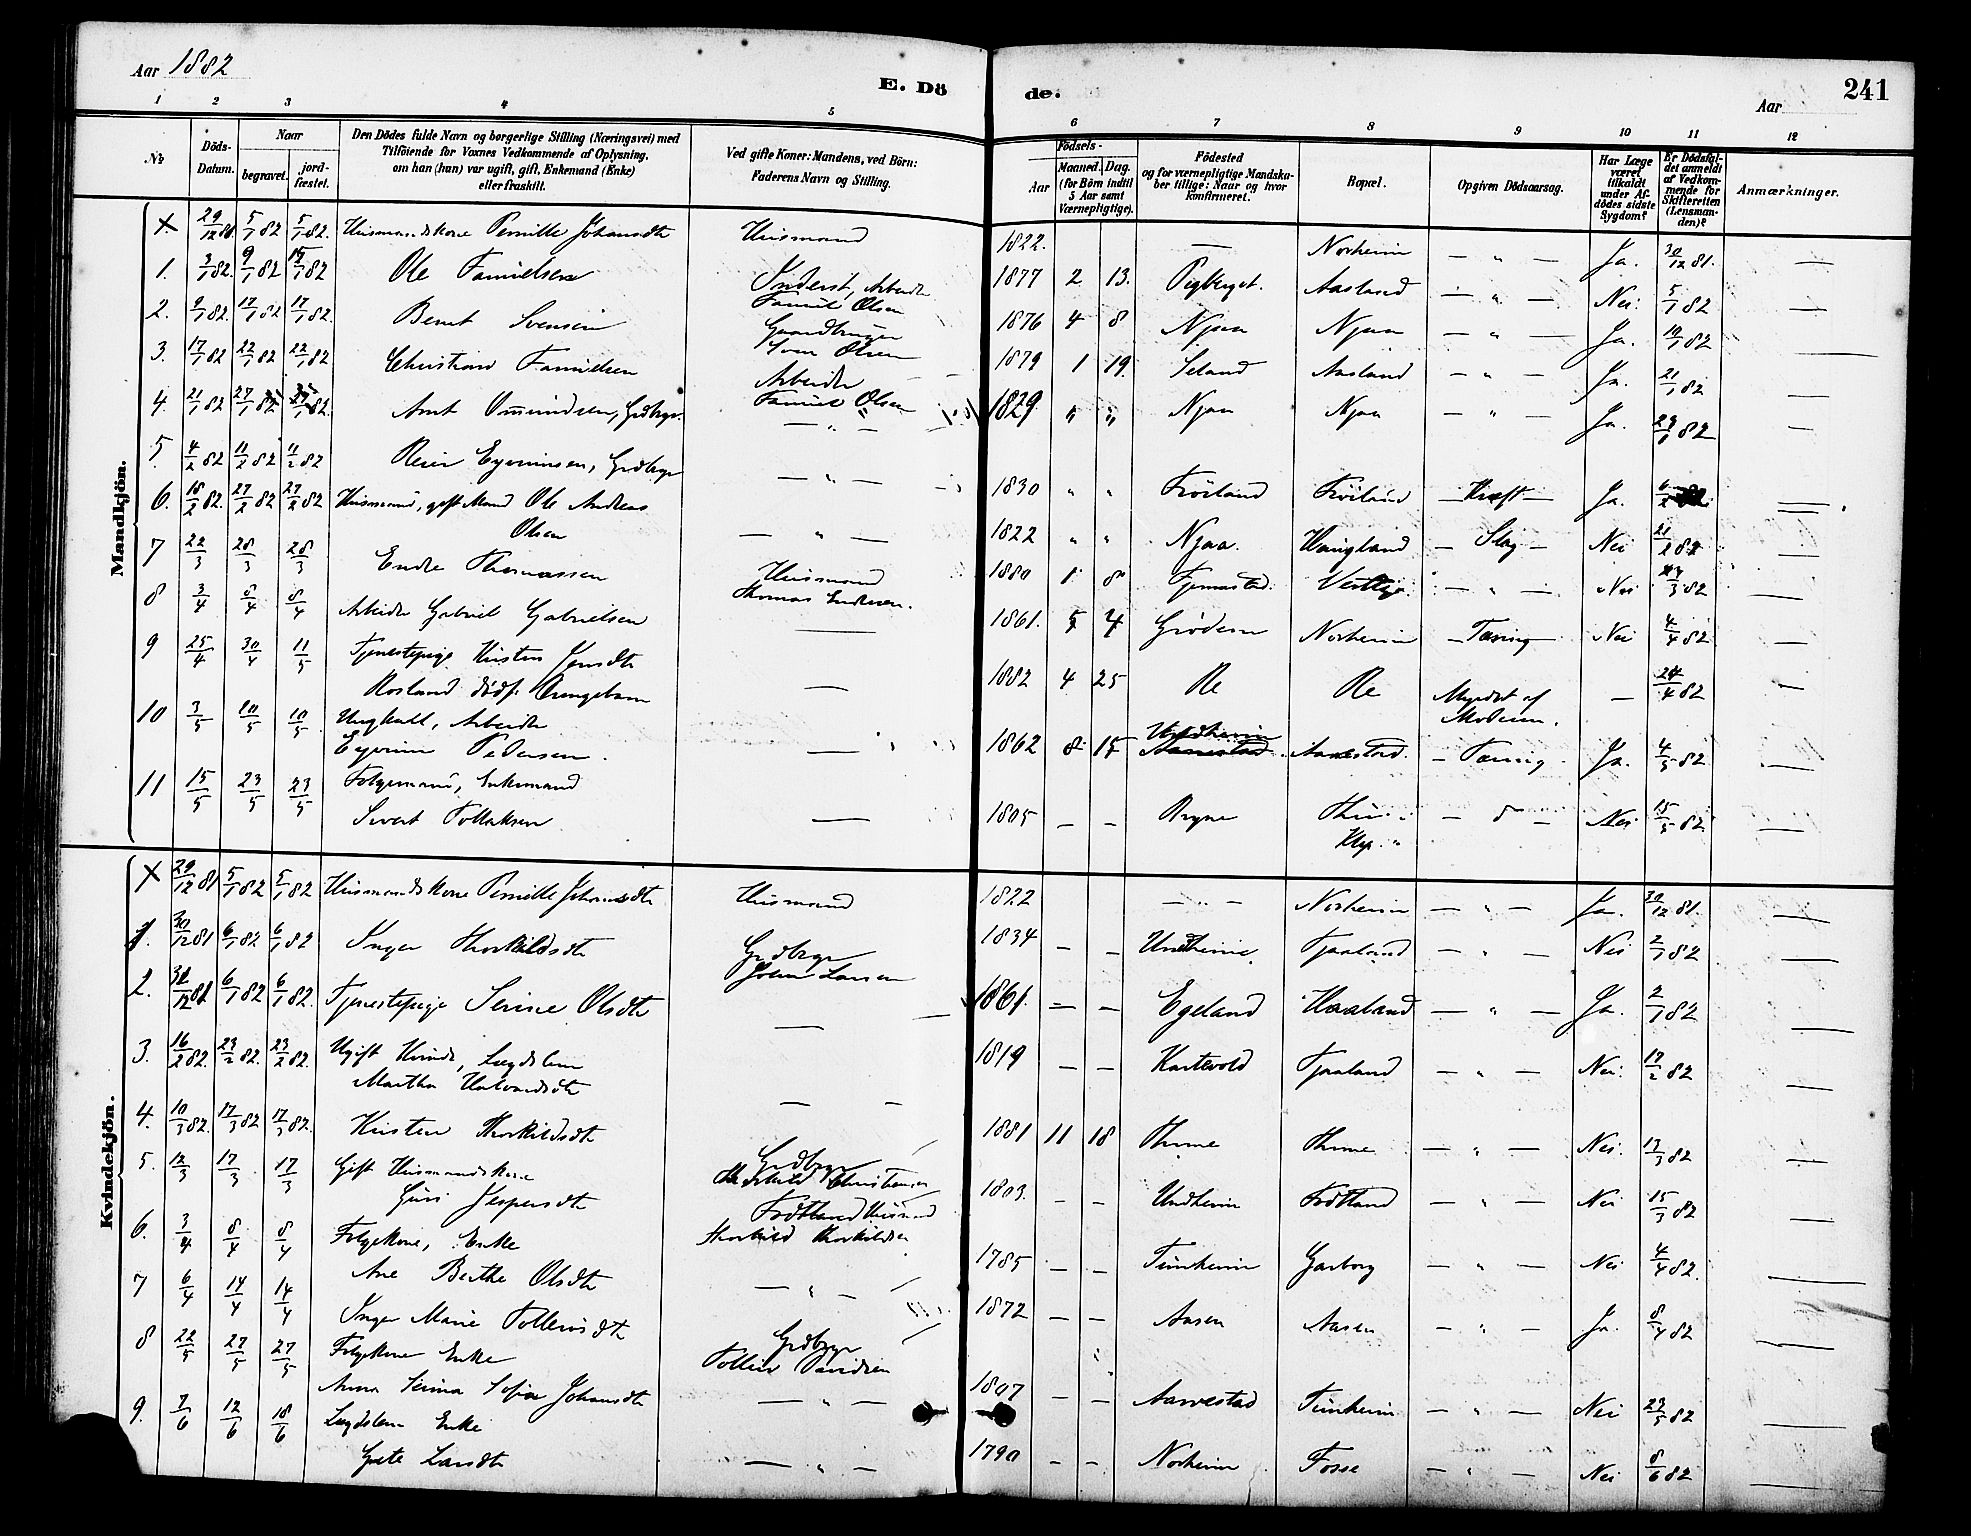 Aar 1882
E. Dö
de.
Aar
241
1 2 3 4 5 6 7 8 9 10 11 12
No
Döds-
Datum.
Naar
begravet.
jord-
fæstet.
Den Dödes fulde Navn og borgerlige Stilling (Næringsvei) med
Tilföiende for Voxnes Vedkommende af Oplysning,
om han (hun) var ugift, gift, Enkemand (Enke)
eller fraskilt.
Ved gifte Koner: Mandens, ved Börn:
Faderens Navn og Stilling.
Födsels-
Aar
Maaned.
Dag.
(for Börn indtil
5 Aar samt
Værnepligtige).
Födested
og for værnepligtige Mandska-
ber tillige: Naar og hvor
konfirmeret.
Bopæl.
Opgiven Dödsaarsag.
Har Læge
været
tilkaldt
under Af-
dödes sidste
Sygdom?
Er Dödsfal-
det anmeldt
af Vedkom-
mende for
Skifteretten
(Lensman-
den)?
Anmærkninger.
Mandkjön.
29/12 81 5/1 82 5/1 82. Husmandskone Pernille Johansdtr Husmand 1822. — Norheim — " — Ja. 30/12 81. —
1. 3/1 82. 9/1 82 Ole 1877 2 13. Aasland — " — Nei. 5/1 82 —
Olsen
2. 9/1 82. 17/1 82 17/1 82. Bernt Svensen Gaardbruger 1876 4 8 Njaa Njaa — " — Ja. 10/1 82 —
Sven Olsen
3. 17/1 82 22/1 82 22/1 82 Christian Arbeider 1879 1 19. Seland Aasland — " — Ja. 21/1 82 —
Olsen
4. 21/1 82 27/1 82 Omundsen, Grdbrgr. — " — 1829 " " Njaa Njaa — " — Ja. 82 —
5. 4/2 82 11/2 82 11/2 82 Grdbrgr — " — 1830 " " Fröiland Fröiland — Kræft — Ja. 6/2 82 —
6. 18/2 82. 27/2 82 27/2 82 Husmand, gift Mand Ole Andreas
Olsen — " — 1822 " " Njaa. Haugland — Slag — Nei 21/2 82 —
7 22/3 28/3 28/3 Endre Thomassen Husmand 1880 1 8 Tjemsland — " — Nei 3 82 —
Thomas Endresen.
8 3/4 8/4 8/4 Arbeider Gabriel Gabrielsen — 1861. 5 4 Grödem Norheim — Tæring — Nei 4/4 82 —
9 25/4 30/4 11/5 Tjenestepige Kirsten
Rosland dödf. Drengebarn — 1882 4 25 Re Re Myrdet af
Moderen. — 4 82 —
10 3/5 10/5 10/5 Ungkarl, Arbeider
Pedersen. — 1862 8 15 Undheim
Aanestad Aanestad. — Tæring. Ja. 4/5 82 —
11 15/5 23/5 23/5 Folgemand, Enkemand
Sivert Tollaksen — 1805 — — Bryne Nei 15/5 82 —
Klep.
Kvindekjön.
29/12 81 5/1 82 5/1 82 Husmandskone Pernille Johansdtr Husmand 1822 — " — Norheim — " — Ja. 30/12 81. —
1. 30/12 81 6/1 82 6/1 82 Inger Thorkildsdtr Grdbrgr 1834 — — Undheim. Tjaaland — " — Nei 2/1 82 —
Larsen
2. 12 81 6/1 82 6/1 82. Tjenestepige Serine Olsdtr — 1861. — — Egeland Haaland — " — Ja. 2/1 82 —
3. 16/2 82. 23/2 82. 23/2 82. Ugift Kvinde, Lægdslem
Martha Halvardsdtr — — 1819 — — Kartevold Tjaaland — " — Nei. 17/2 82 —
4. 10/3 82. 17/3 82 17/3 82. Kirsten Thorkildsdtr Grdbrgr 1881 11 18 Thime Thime — " — Nei. 13/3 82 —
Thorkild Christensen
5. 12/3 17/3 17/3 Gift Husmandskone
Guri Jespersdtr Frötland Husmand 1803. — — Undheim Frötland — " — Nei 15/3 82 —
Thorkild Thorkildsen
6. 3/4 8/4 8/4 Folgekone, Enke
Ane Berthe Olsdtr — " — 1785 — — Tunheim Garborg — " — Nei 4/4 82. —
7 6/4 14/4 14/4 Inger Marie Tollevsdtr Grdbrgr 1872 — — Aasen Aasen — " — Ja. 8/4 82 —
Tollev Davidsen
8 22/5 27/5 27/5 Folgekone Enke
Anna Serina Sofie Johansdtr — " — 1807 — — Aarrestad Tunheim — " — Nei 23/5 82 —
9. 7/6 12/6 18/6 Lægdslem Enke
Grete Larsdtr — " — 1790 — — Norheim Fosse — " — Nei 8/6 82 —